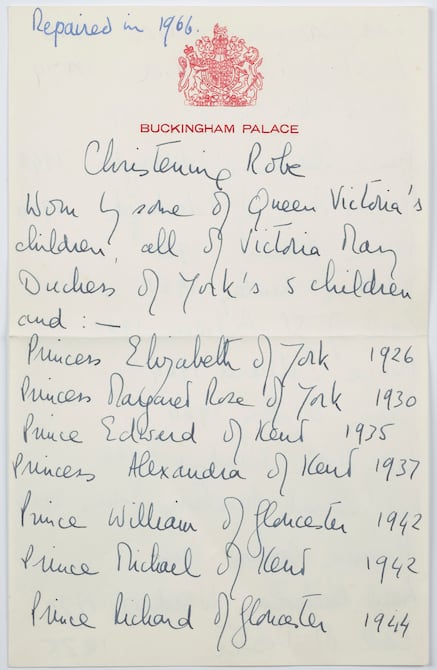 Repaired in 1966.
BUCKINGHAM PALACE
Christening Robe
Worn by some of Queen Victoria's
children, all of Victoria Mary
Duchess of York's 5 children
and : —
Princess Elizabeth of York 1926
Princess Margaret Rose of York 1930
Prince Edward of Kent 1935
Princess Alexandra of Kent 1937
Prince William of Gloucester 1942
Prince Michael of Kent 1942
Prince Richard of Gloucester 1944